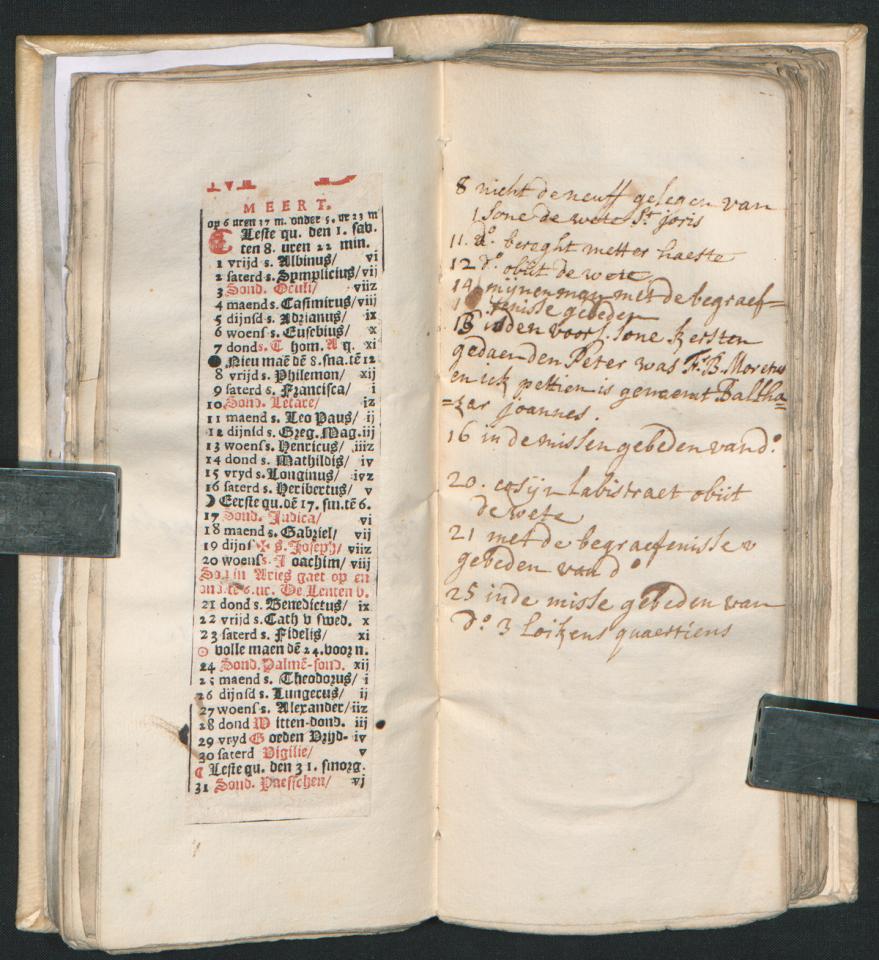 MEERT.
op 6 uren 37 m. onder 5. ur 23 m
Leste qu. den 1. sav.
ten 8. uren 22 min.
1 vrijd s. Albinus/ vj
2 saterd s. Symplicius/ vij
3 Sond. Oculi/ viiz
4 maend s. Casimirus/ viij
5 dijnsd s. Adrianus/ ix
6 woens s. Eusebius/ x
7 donds. T hom. A q. xi
Nieu maē dē 8. sna. tē 12
8 vrijd s. Philemon/ xij
9 saterd s. Francisca/ i
10 Sond. Letare/ iz
11 maend s. Leo Paus/ ij
12 dijnsd s. Greg. Mag. iij
13 woens s. Henricus/ iiiz
14 dond s. Mathildis/ iv
15 vryd s. Longinus/ ivz
16 saterd s. Heribertus/ v
Eerste qu. dē 17. sm. tē 6.
17 Sond. Judica/ vi
18 maend s. Gabriel/ vij
19 dijns ✠ S. Joseph/ viiz
20 woens s. J oachim/ viij
Sol in Aries gaet op en
ond. te 6. ur. De Lenten b.
21 dond s. Benedictus/ ix
22 vrijd s. Cath v swed. x
23 saterd s. Fidelis/ xi
volle maen dē 24. voor n.
24 Sond. Palmē-sond. xij
25 maend s. Theodorus/ i
26 dijnsd s. Lungerus/ ij
27 woens s. Alexander/ iiz
28 dond W itten-dond. iij
29 vryd G oeden Vrijd- iv
30 saterd Vigilie/ v
Leste qu. den 31. smorg.
31 Sond. Paesschen/ vj
8 nicht de neuff gelegen van
1 sone de wete St joris
11. do. bereght metter haeste
12 do. obiit de wete
14 mijnen man met de begraef=
fenisse gebeden
15 den voors. sone kersten
gedaen den Peter was F. B. Moretus
en ick pettien is genaemt Baltha=
=zar joannes.
16 in de missen gebeden van do.
20. cosijn Labistraet obiit
de wete
21 met de begraefenisse v
gebeden van do
25 inde misse gebeden van
do. 3 loikens quaertiens